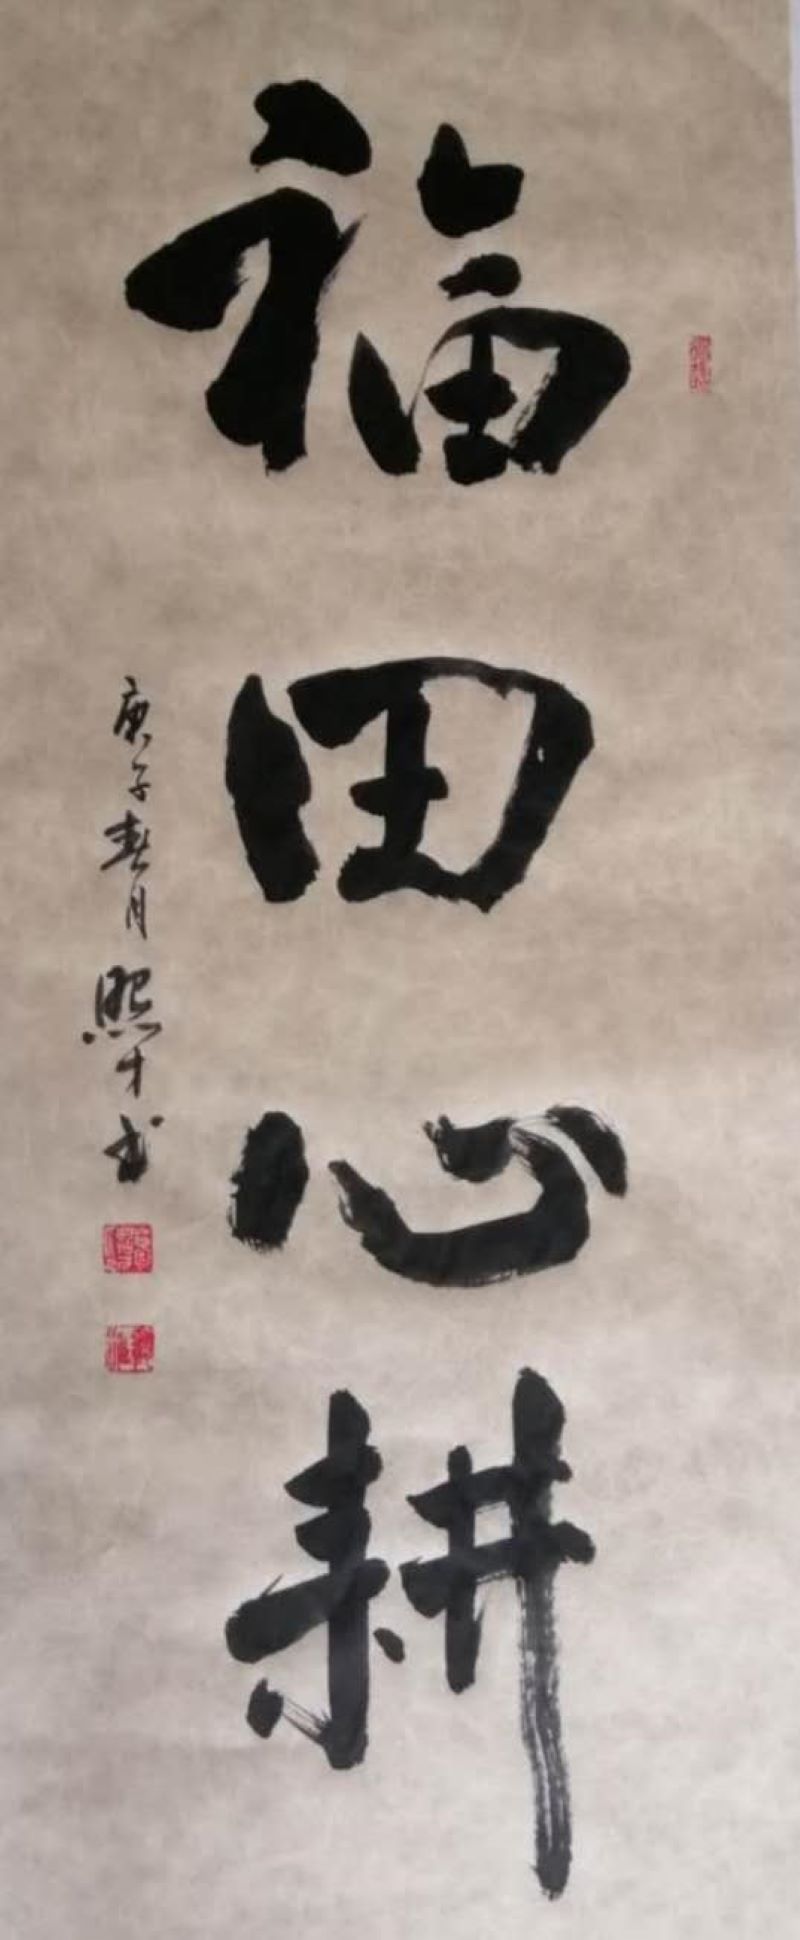 福田心耕
庚子春月熙才书